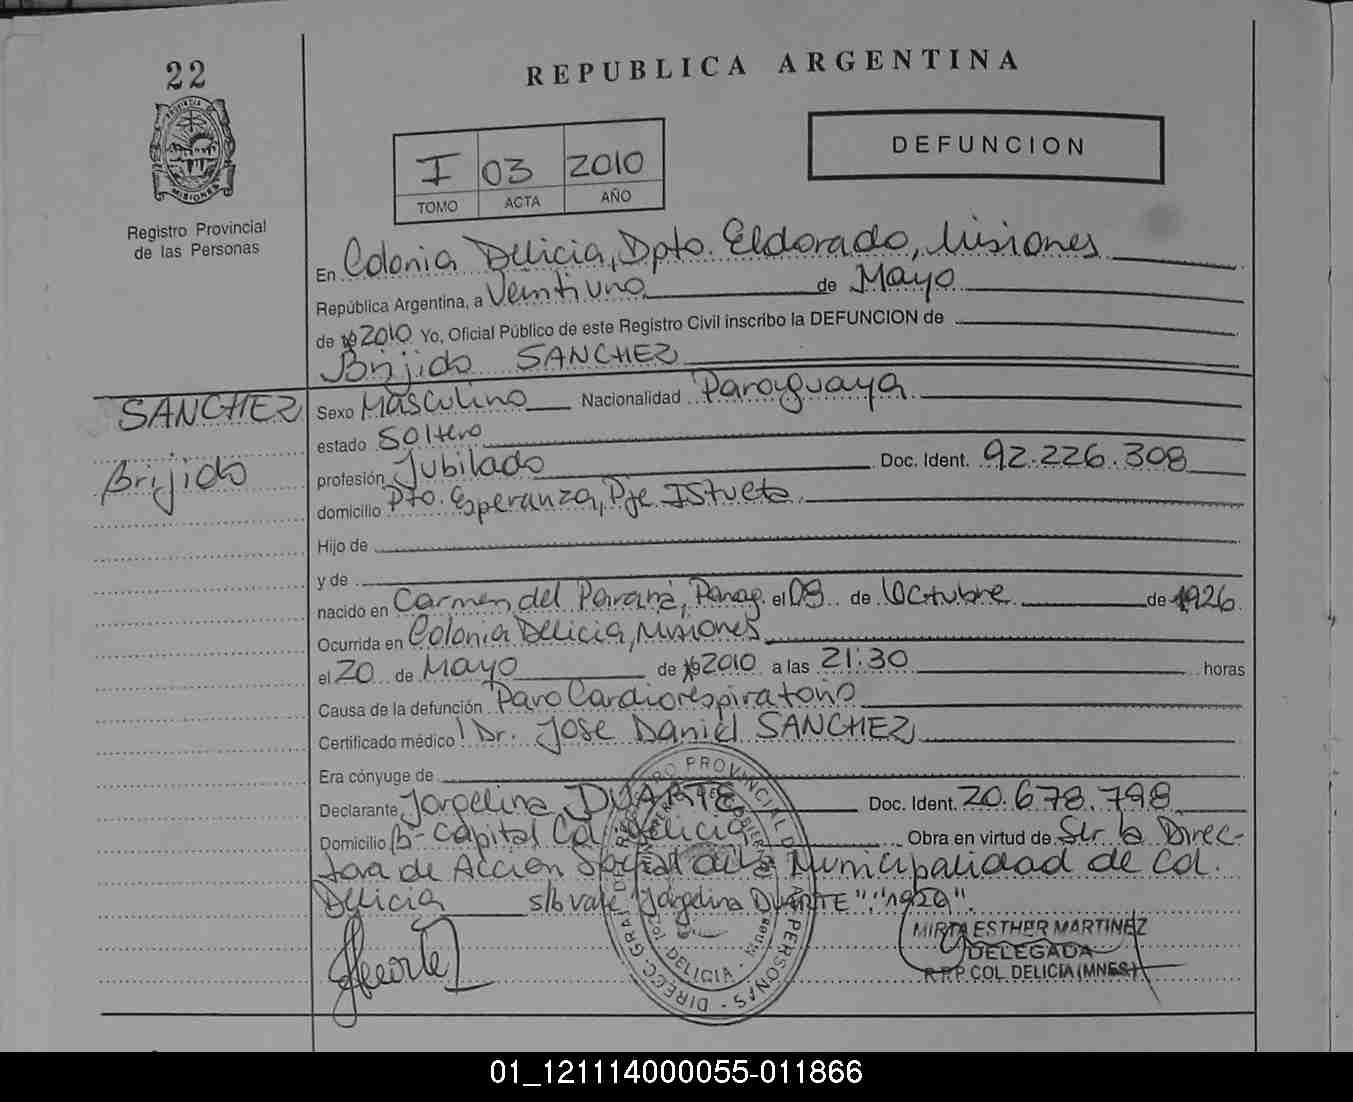 22
REPUBLICA ARGENTINA
PROVINCIA
MISIONES
Registro Provincial
de las Personas
I 03 2010
TOMO ACTA AÑO
DEFUNCION
En Colonia Delicia, Dpto. Eldorado, Misiones
República Argentina, a Veintiuno de Mayo
de 2010 Yo, Oficial Público de este Registro Civil inscribo la DEFUNCION de
Brijido SANCHEZ
SANCHEZ
Brijido
Sexo Masculino Nacionalidad Paraguaya
estado Soltero
profesión Jubilado Doc. Ident. 92.226.308
domicilio Pto. Esperanza, Pje
Hijo de
y de
nacido en Carmen del Paraná, Parag. el 08 de Octubre de 1926
Ocurrida en Colonia Delicia, Misiones
el 20 de Mayo de 2010 a las 21:30 horas
Causa de la defunción Paro Cardiorespiratorio
Certificado médico Dr. Jose Daniel SANCHEZ
Era cónyuge de
Declarante Jorgelina DUARTE Doc. Ident. 20.678.798
Domicilio Bº Capital Col. Delicia Obra en virtud de Ser la Direc-
tora de Accion Social de la Municipalidad de Col.
Delicia s/b vale "Jorgelina DUARTE", "1926".
MIRTA ESTHER MARTINEZ
DELEGADA
R.P.P COL. DELICIA (MNES)
DIREC. GRAL. DE REGISTRO PROVINCIAL DE LAS PERSONAS
DELICIA - Mnes
01_121114000055-011866